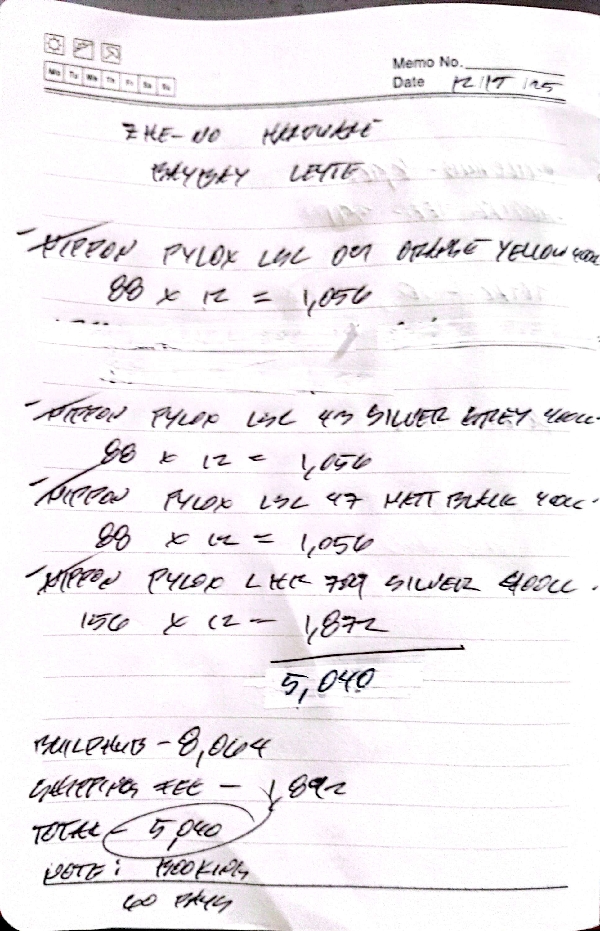 Mo Tu We Th Fr Sa Su
Memo No.
Date 12/17/25
ZHE-NO HARDWARE
BAYBAY LEYTE
- NIPPON PYLOX LSC 009 ORANGE YELLOW 400cc
88 x 12 = 1,056
- NIPPON PYLOX LSC 43 SILVER GREY 400cc.
88 x 12 = 1,056
- NIPPON PYLOX LSC 47 MATT BLACK 400cc.
88 x 12 = 1,056
- NIPPON PYLOX SILVER 400cc.
156 x 12 - 1,872
5,040
BUILDHUB - 8,064
SHIPPING FEE - 1,892
TOTAL - 5,040
NOTE: BOOKING
60 DAYS